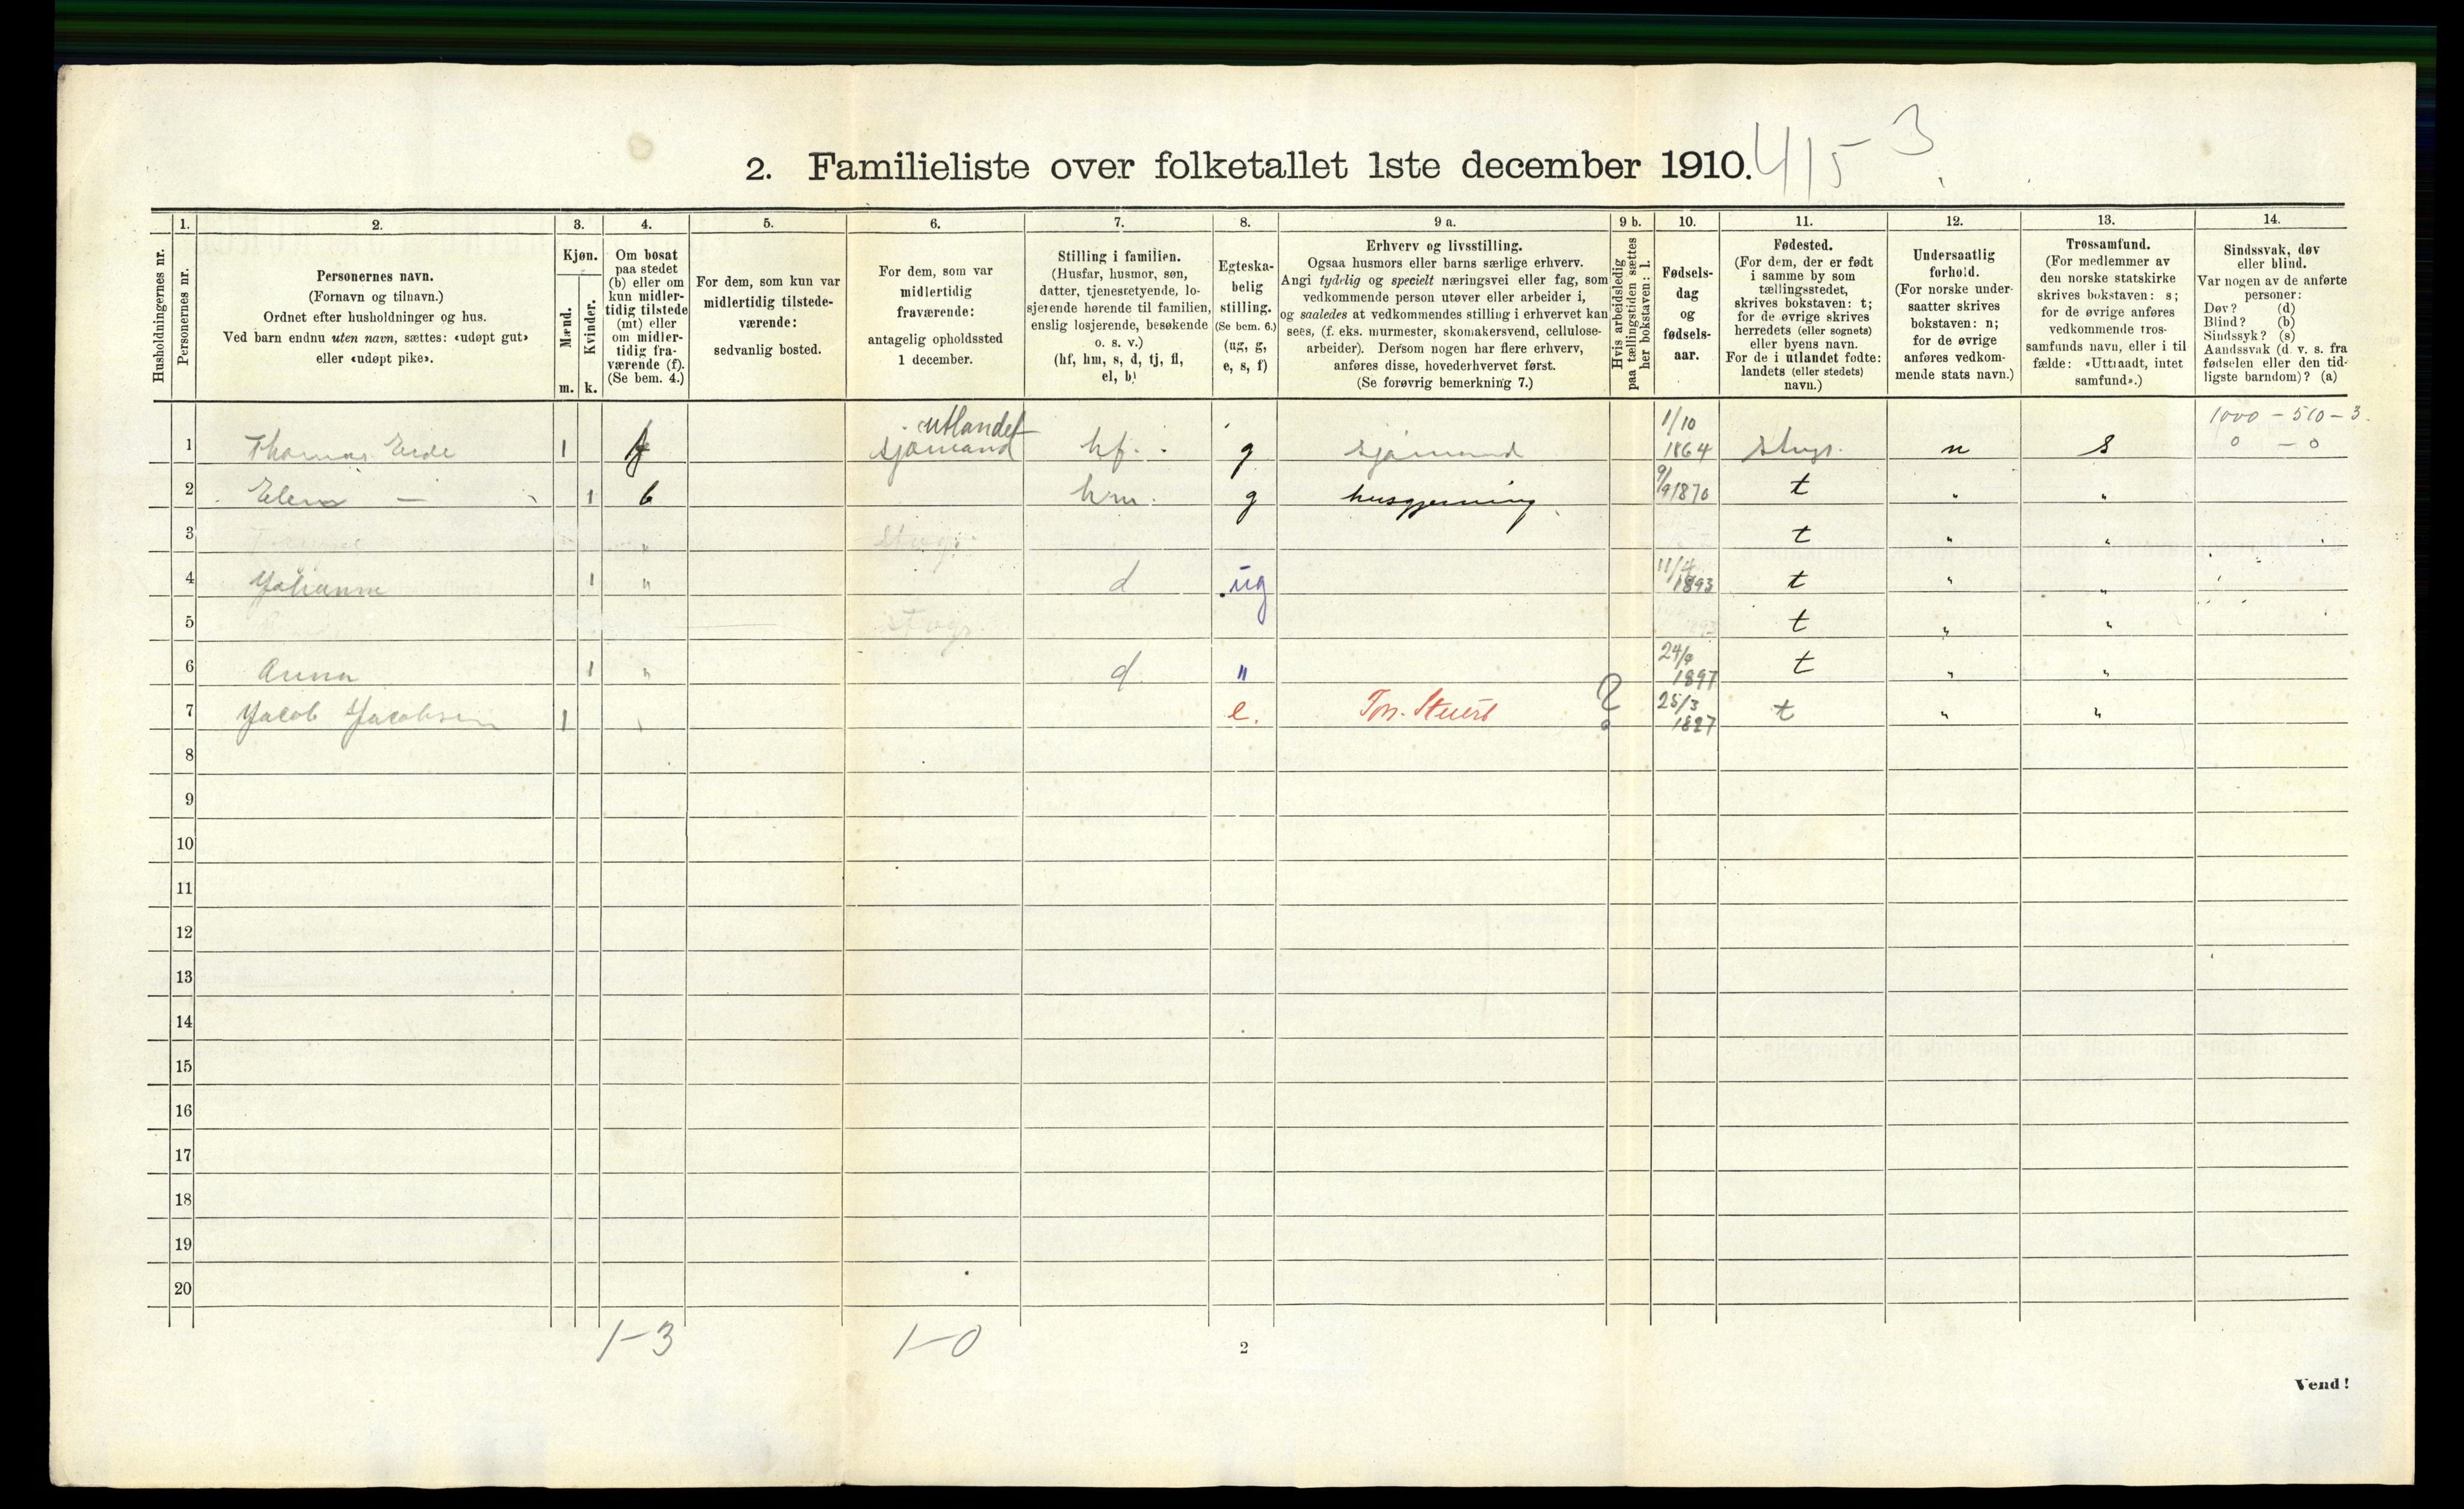 2. Familieliste over folketallet 1ste december 1910.
415 3
Husholdningernes nr.
1.
Personernes nr.
2.
Personernes navn.
(Fornavn og tilnavn.)
Ordnet efter husholdninger og hus.
Ved barn endnu uten navn, sættes: «udøpt gut»
eller «udøpt pike».
3.
Kjøn.
Mænd.
m.
Kvinder.
k.
4.
Om bosat
paa stedet
(b) eller om
kun midler-
tidig tilstede
(mt) eller
om midler-
tidig fra-
værende (f).
(Se bem. 4.)
5.
For dem, som kun var
midlertidig tilstede-
værende:
sedvanlig bosted.
6.
For dem, som var
midlertidig
fraværende:
antagelig opholdssted
1 december.
7.
Stilling i familien.
(Husfar, husmor, søn,
datter, tjenestetyende, lo-
sjerende hørende til familien,
enslig losjerende, besøkende
o. s. v.)
(hf, hm, s, d, tj, fl,
el, b)
8.
Egteska-
belig
stilling.
(Se bem. 6.)
(ug, g,
e, s, f)
9 a.
Erhverv og livsstilling.
Ogsaa husmors eller barns særlige erhverv.
Angi tydelig og specielt næringsvei eller fag, som
vedkommende person utøver eller arbeider i,
og saaledes at vedkommendes stilling i erhvervet kan
sees, (f. eks. murmester, skomakersvend, cellulose-
arbeider). Dersom nogen har flere erhverv,
anføres disse, hovederhvervet først.
(Se forøvrig bemerkning 7.)
9 b.
Hvis arbeidsledig
paa tællingstiden sættes
her bokstaven: l.
10.
Fødsels-
dag
og
fødsels-
aar.
11.
Fødested.
(For dem, der er født
i samme by som
tællingsstedet,
skrives bokstaven: t;
for de øvrige skrives
herredets (eller sognets)
eller byens navn.
For de i utlandet fødte:
landets (eller stedets)
navn.)
12.
Undersaatlig
forhold.
(For norske under-
saatter skrives
bokstaven: n;
for de øvrige
anføres vedkom-
mende stats navn.)
13.
Trossamfund.
(For medlemmer av
den norske statskirke
skrives bokstaven: s;
for de øvrige anføres
vedkommende tros-
samfunds navn, eller i til
fælde: «Uttraadt, intet
samfund».)
14.
Sindssvak, døv
eller blind.
Var nogen av de anførte
personer:
Døv? (d)
Blind? (b)
Sindssyk? (s)
Aandssvak (d. v. s. fra
fødselen eller den tid-
ligste barndom)? (a)
utlandet 1/10 1000 – 510 – 3
1 Thomas 1 f sjømand hf. g sjømand 1864 n s 0 – 0
2 Elen — 1 b hm. g husgjerning 9/9 1870 t " "
3 t " "
4 Johanne 1 " d ug 11/4 1893 t " "
5 t " "
6 Anna 1 " d " 24/9 1897 t " "
7 Jacob Jacobsen 1 e. ? 25/3 1827 t " "
8
9
10
11
12
13
14
15
16
17
18
19
20
1–3 1–0
2
Vend!